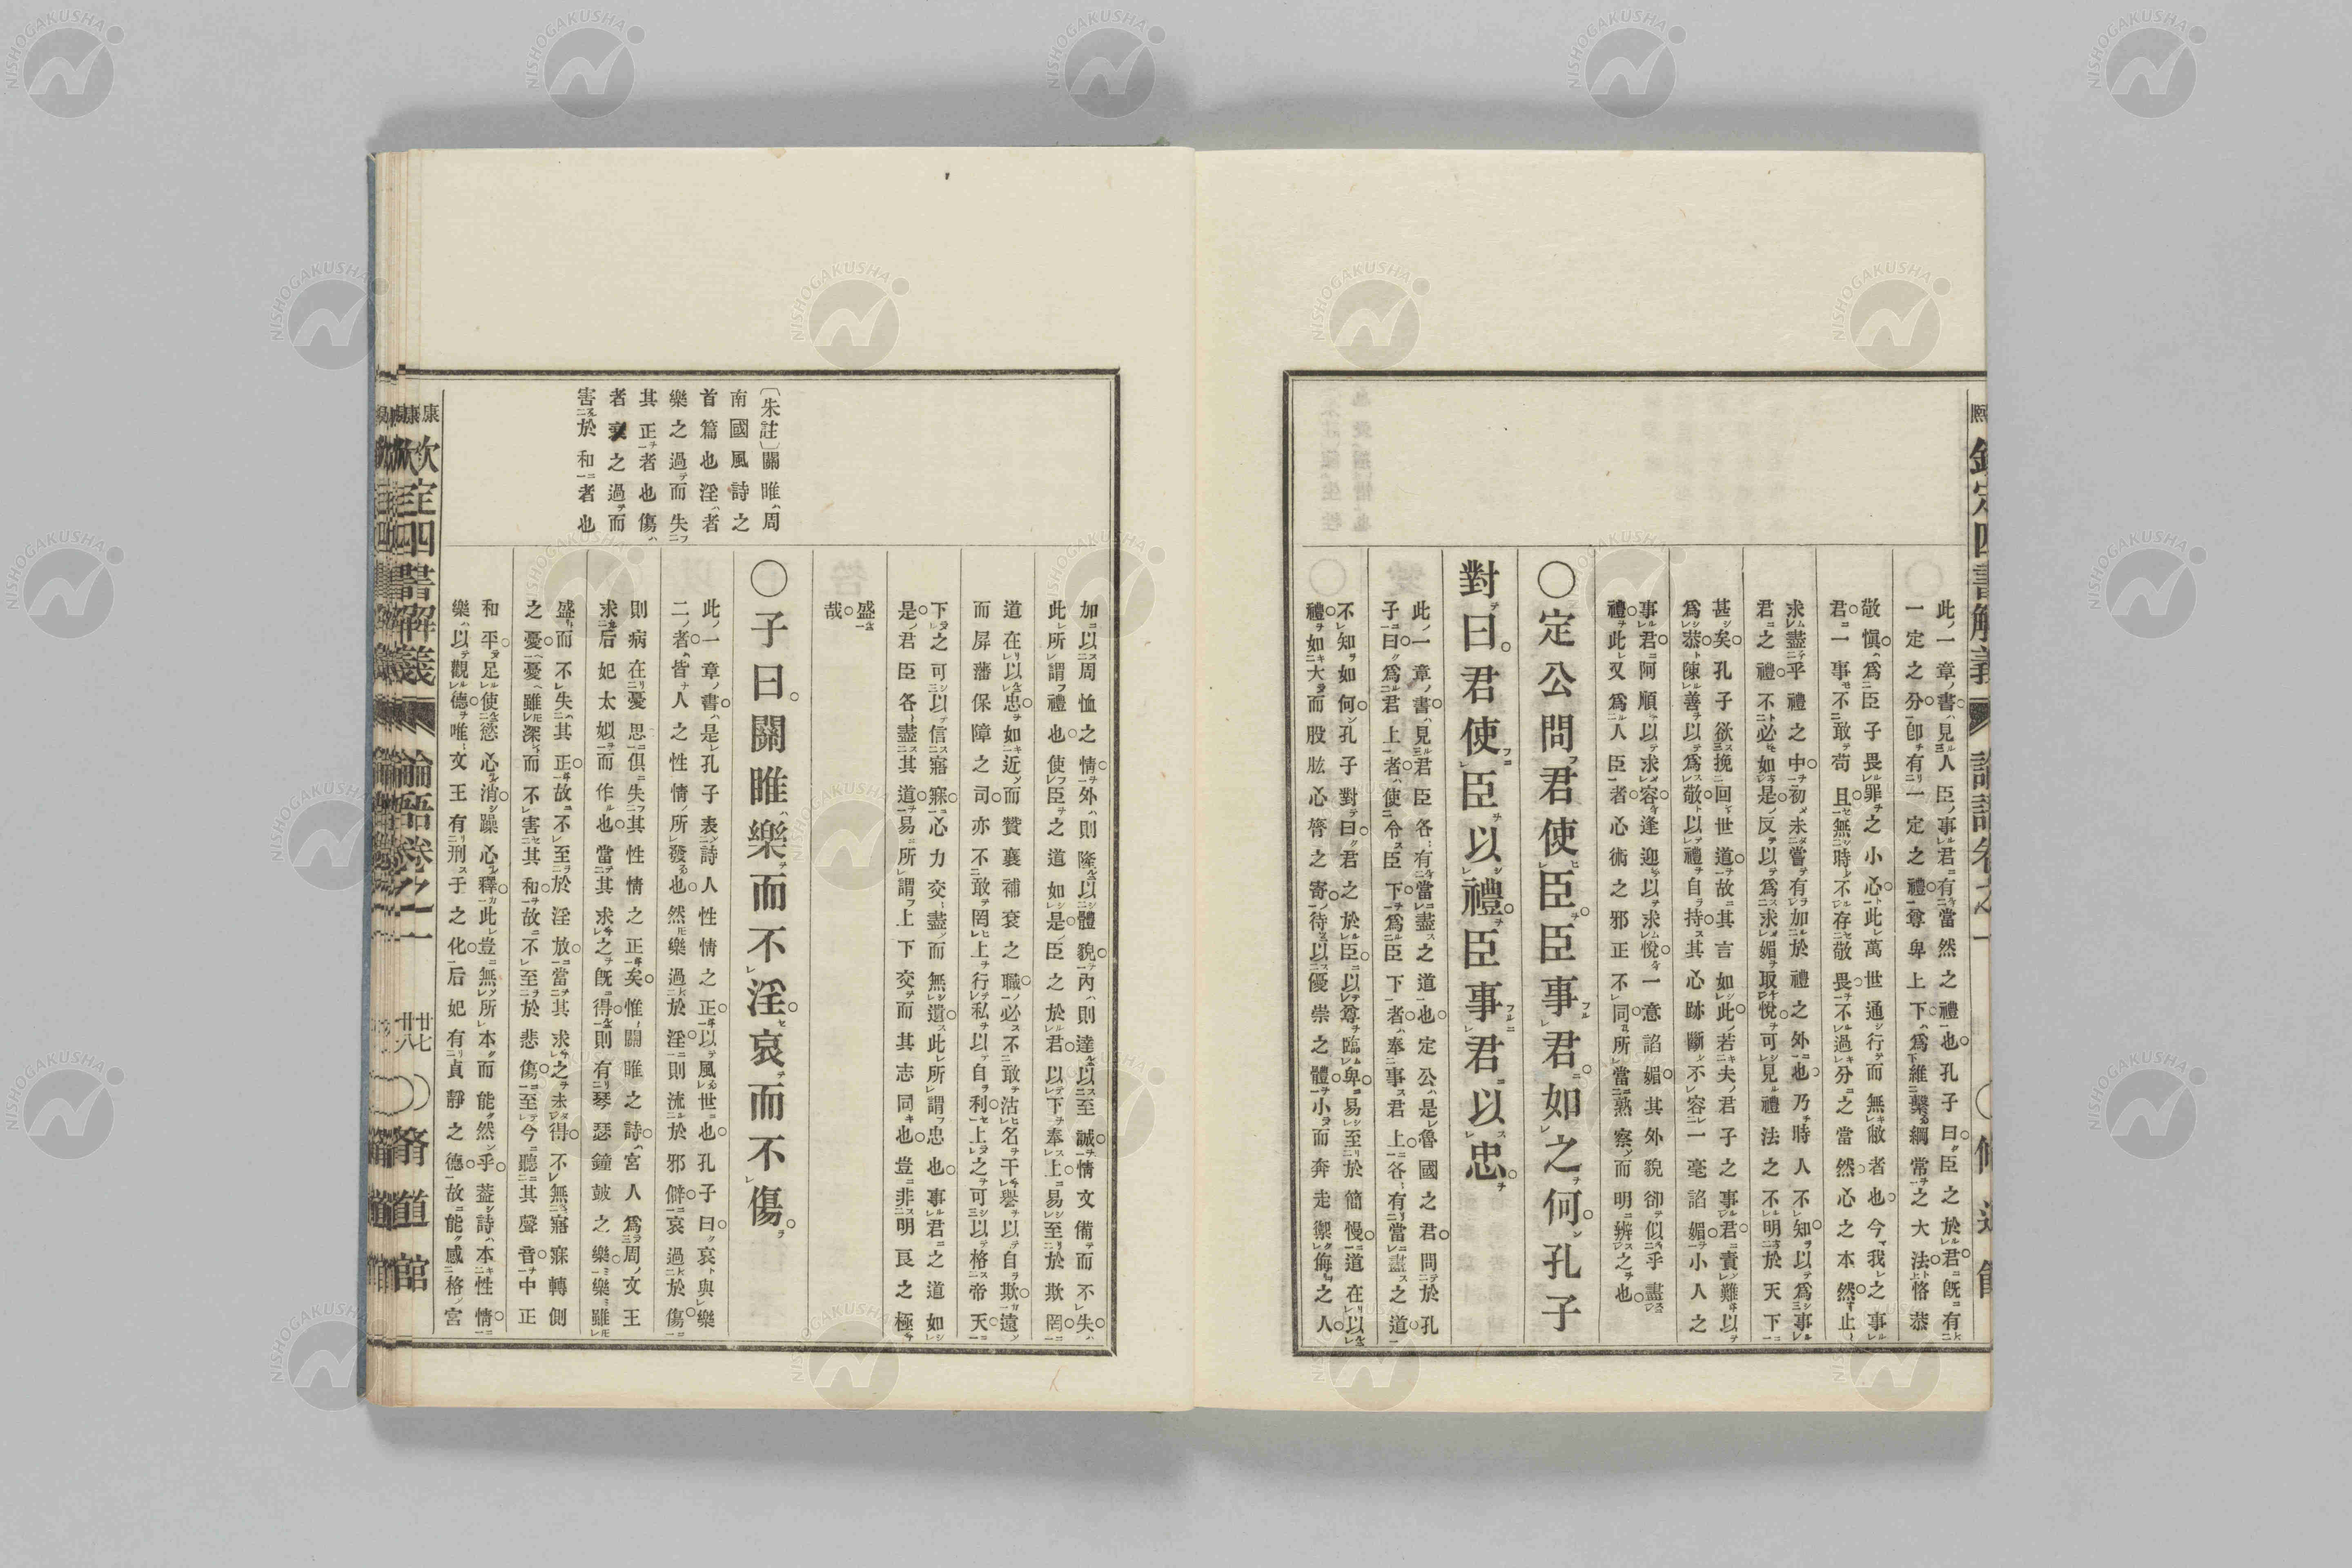 此一章書見人臣事君有當然之禮也孔子曰臣之於君既有
一定之分卽有一定之禮尊卑上下爲維繫綱常之大法恪恭
敬愼爲臣子畏罪之小心此萬世通行而無敝者也今我之事
君一事不敢苟且無時不存敬畏不過分之當然心之本然止
求盡乎禮之中初未嘗有加於禮之外也乃時人不知以爲事
君之禮不必如是反以爲求媚取悅可見禮法之不明於天下
甚矣孔子欲挽回世道故其言如此若夫君子之事君責難以
爲恭陳善以爲敬以禮自持其心跡斷不容一毫諂媚小人之
事君阿順以求容逢迎以求悅一意諂媚其外貌卻似乎盡
禮此又爲人臣者心術之邪正不同所當熟察而明辨之也
○定公問君使臣臣事君如之何孔子
對曰君使臣以禮臣事君以忠
此一章書見君臣各有當盡之道也定公是魯國之君問於孔
子曰爲君上者使令臣下爲臣下者奉事君上各有當盡之道
不知如何孔子對曰君之於臣以尊臨卑易至於簡慢道在以
禮如大而股肱心膂之寄待以優崇之體小而奔走禦侮之人
加以周恤之情外則隆以體貌內則達以至誠情文備而不失
此所謂禮也使臣之道如是臣之於君以下奉上易至於欺罔
道在以忠如近而贊襄補袞之職必不敢沽名干譽以自欺遠
而屏藩保障之司亦不敢罔上行私以自利上之可以格帝天
下之可以信寤寐心力交盡而無遺此所謂忠也事君之道如
是君臣各盡其道易所謂上下交而其志同也豈非明良之極
盛
哉
〔朱註〕關睢周
南國風詩之
首篇也淫者
樂之過而失
其正者也傷
者哀之過而
害於和者也
○子曰關睢樂而不淫哀而不傷
此一章書是孔子表詩人性情之正以風世也孔子曰哀與樂
二者皆人之性情所發也然樂過於淫則流於邪僻哀過於傷
則病在憂思俱失其性情之正矣惟關睢之詩宮人爲周文王
求后妃太姒而作也當其求之既得則有琴瑟鐘鼓之樂樂雖
盛而不失其正故不至於淫放當其求之未得不無寤寐轉側
之憂憂雖深而不害其和故不至於悲傷至今聽其聲音中正
和平足使慾心消躁心釋此豈無所本而能然乎蓋詩本性情
樂以觀德唯文王有刑于之化后妃有貞靜之德故能感格宮